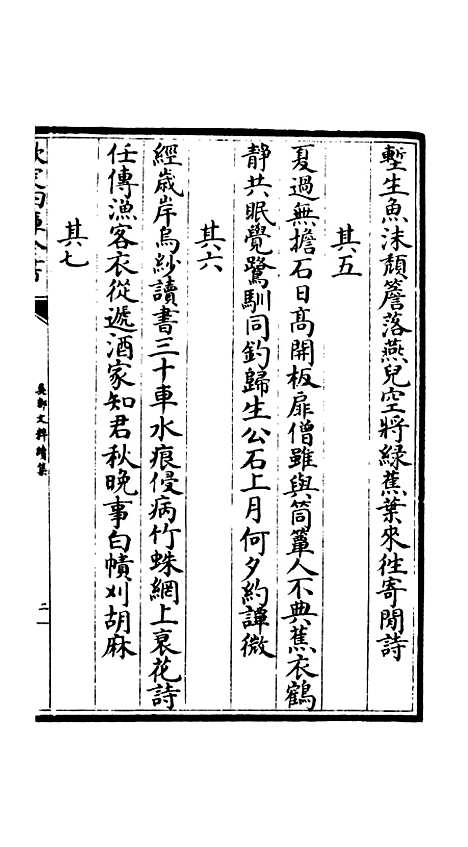 塹生魚沫頹簷落燕兒空將緑蕉葉來徃寄閒詩
其五
夏過無擔石日髙開板扉僧雖與筒簟人不典蕉衣鶴
静共眠覺鷺馴同釣歸生公石上月何夕約譚微
其六
經歳岸烏紗讀書三十車水痕侵病竹蛛網上衰花詩
任傳漁客衣從遞酒家知君秋晚事白幘刈胡麻
其七
欽定四庫全書
吳都文粹續集
二